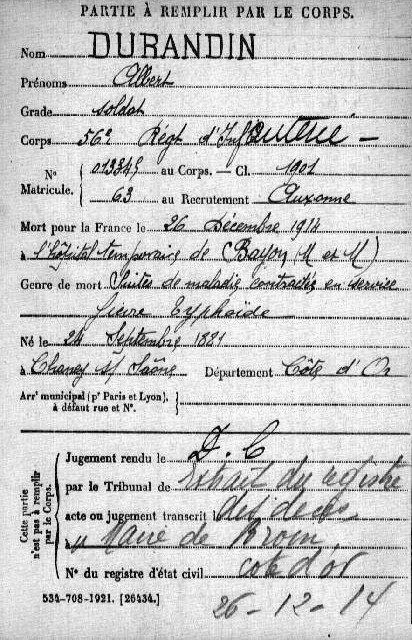 PARTIE À REMPLIR PAR LE CORPS.
Nom DURANDIN
Prénoms Albert
Grade soldat
Corps 56e Régt d'Infanterie
No 013345 au Corps. — Cl. 1901
Matricule. 63 au Recrutement Auxonne
Mort pour la France le 26 Décembre 1914
à l'hôpital temporaire de Bayon (M et M)
Genre de mort Suites de maladie contractée en service
fièvre typhoïde
Né le 24 Septembre 1881
à s/ Saône Département Côte d'Or
Arrt municipal (pr Paris et Lyon), à défaut rue et No.
Cette partie n'est pas à remplir par le Corps.
Jugement rendu le D. C
par le Tribunal de Extrait du registre
acte ou jugement transcrit l des décès
à Mairie de
No du registre d'état civil cote d'or
534-708-1921. [26434.]
26-12-14